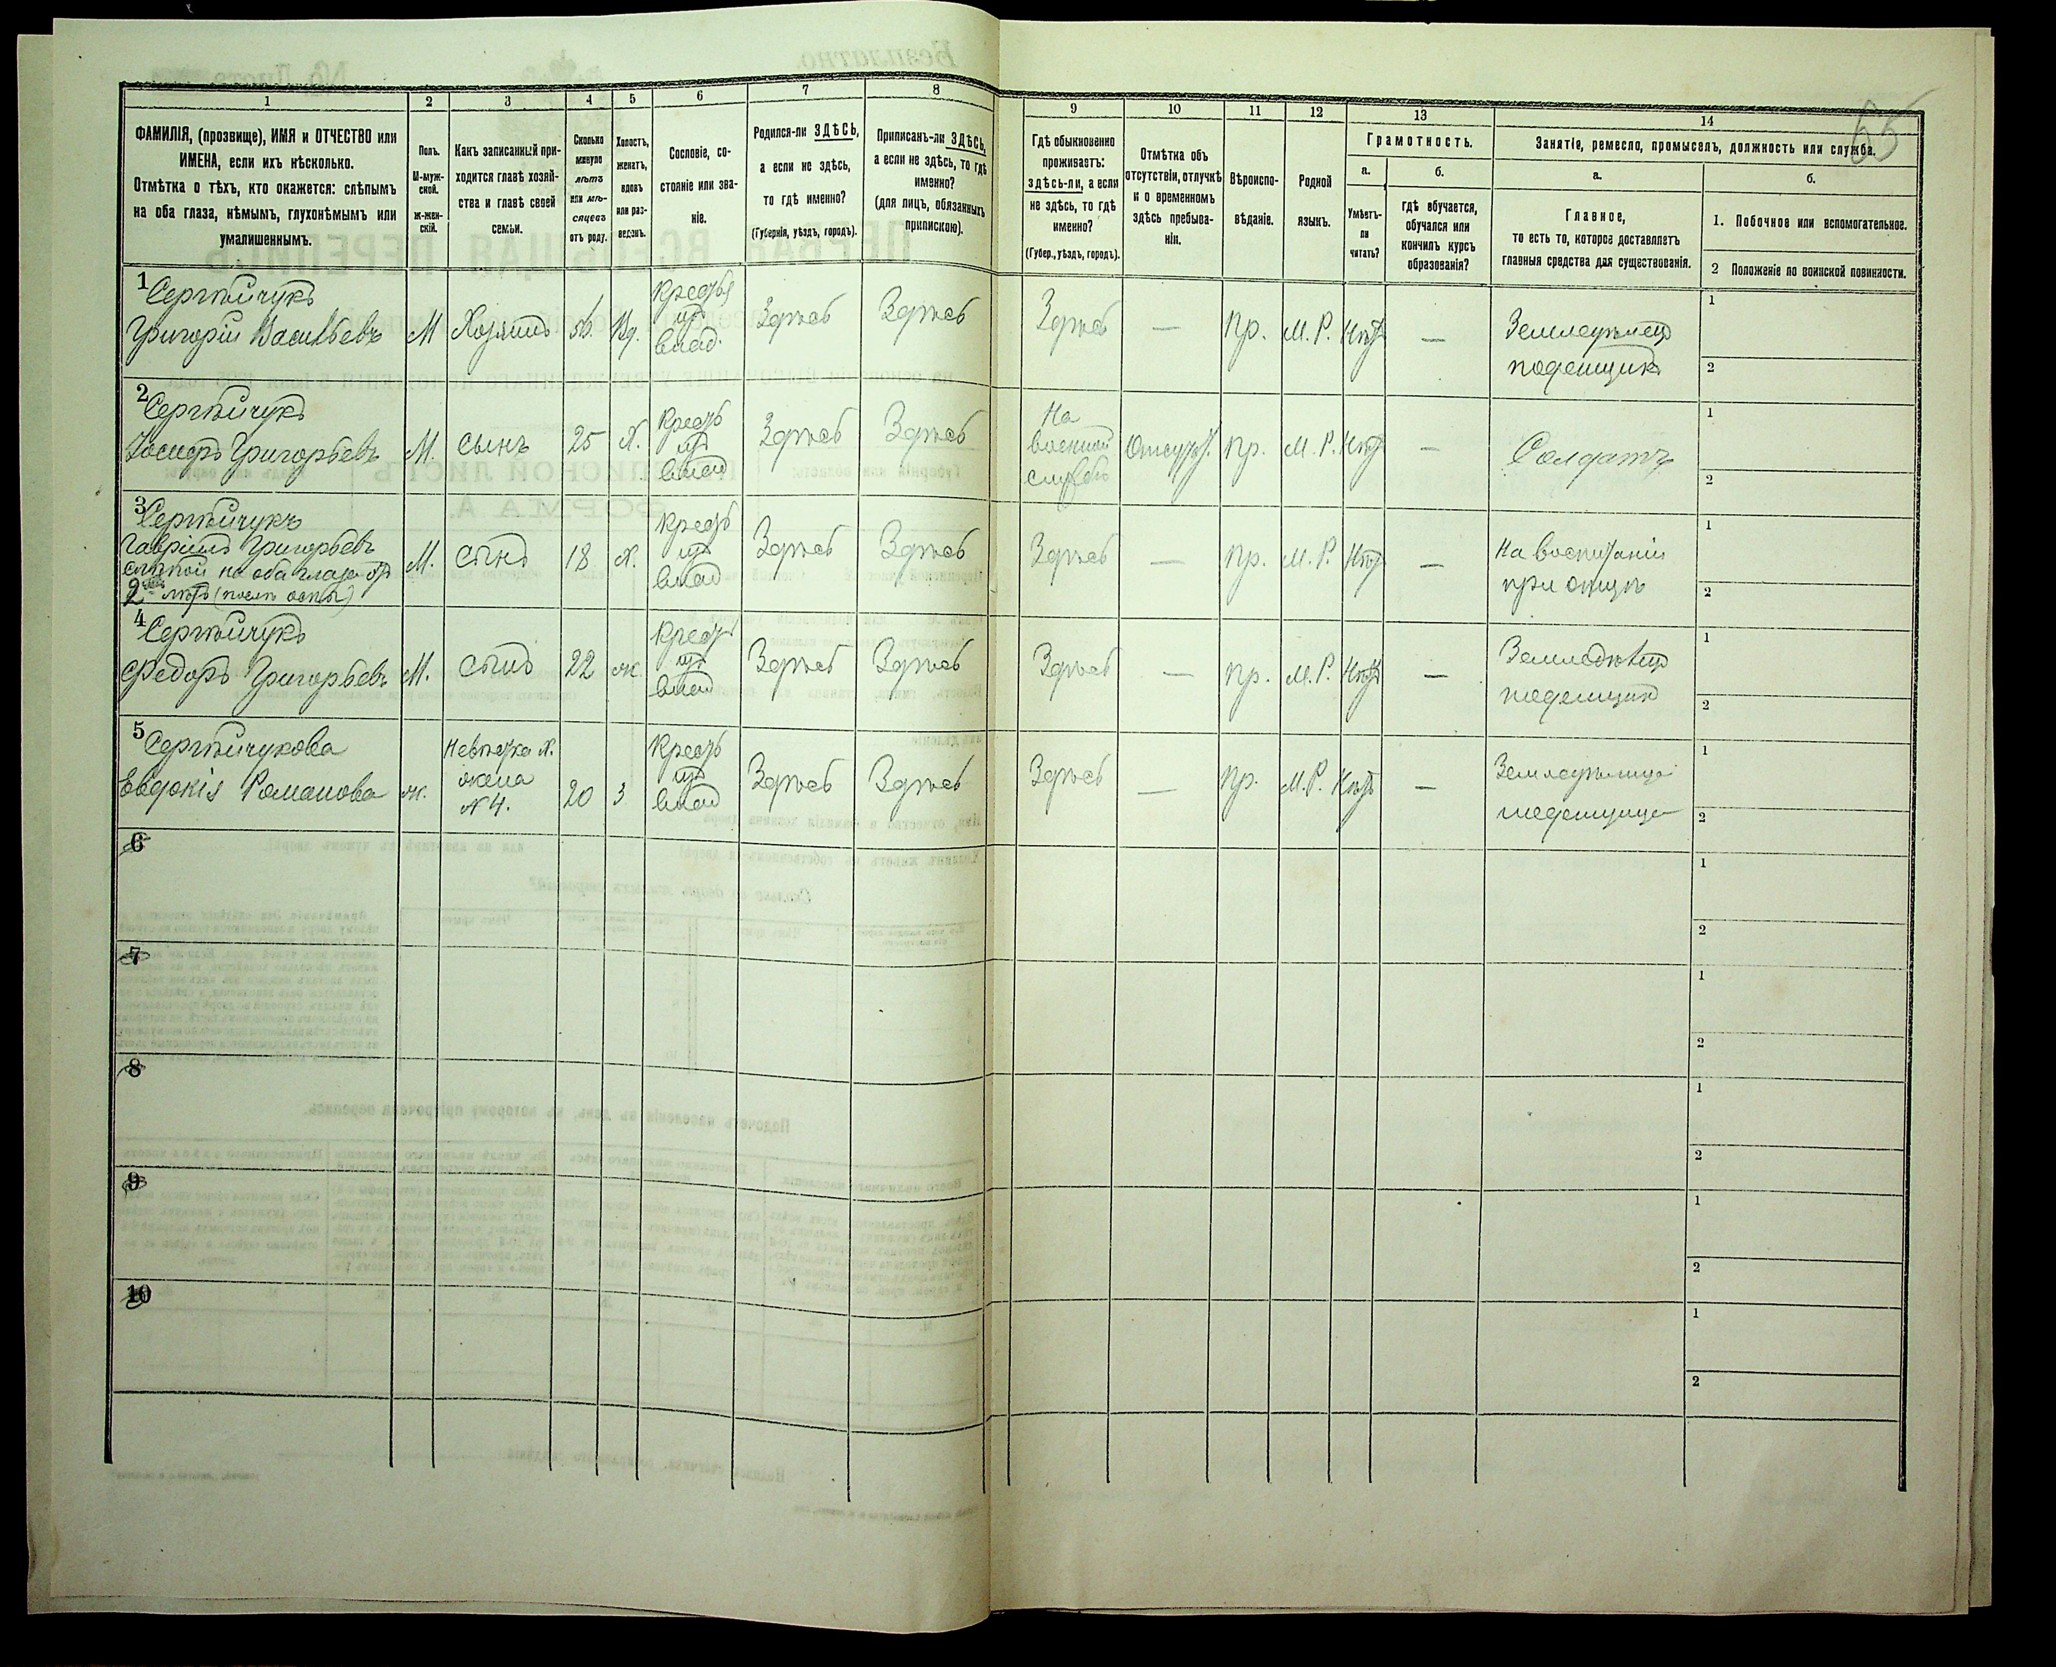 65
1 2 3 4 5 6 7 8 9 10 11 12 13 14
ФАМИЛІЯ, (прозвище), ИМЯ и ОТЧЕСТВО или
ИМЕНА, если ихъ нѣсколько.
Отмѣтка о тѣхъ, кто окажется: слѣпымъ
на оба глаза, нѣмымъ, глухонѣмымъ или
умалишеннымъ.
Полъ.
М-муж-
ской.
ж-жен-
скій.
Какъ записанный при-
ходится главѣ хозяй-
ства и главѣ своей
семьи.
Сколько
минуло
лѣтъ
или мѣ-
сяцевъ
отъ роду.
Холостъ,
женатъ,
вдовъ
или раз-
веденъ.
Сословіе, со-
стояніе или зва-
ніе.
Родился-ли ЗДѢСЬ,
а если не здѣсь,
то гдѣ именно?
(Губернія, уѣздъ, городъ).
Приписанъ-ли ЗДѢСЬ,
а если не здѣсь, то гдѣ
именно?
(для лицъ, обязанныхъ
припискою).
Гдѣ обыкновенно
проживаетъ:
здѣсь-ли, а если
не здѣсь, то гдѣ
именно?
(Губер., уѣздъ, городъ).
Отмѣтка объ
отсутствіи, отлучкѣ
и о временномъ
здѣсь пребыва-
ніи.
Вѣроиспо-
вѣданіе.
Родной
языкъ.
Грамотность.
а.
Умѣетъ-
ли
читать?
б.
гдѣ обучается,
обучался или
кончилъ курсъ
образованія?
Занятіе, ремесло, промыселъ, должность или служба.
а.
Главное,
то есть то, которое доставляетъ
главныя средства для существованія.
б.
1. Побочное или вспомогательное.
2 Положеніе по воинской повинности.
1
Сергѣйчукъ
Григорій Васильевъ
М
Хозяинъ
Вд.
влад.
Здѣсь
Здѣсь
Здѣсь
—
Пр.
М. Р.
Нѣтъ
—
Земледѣлец
поденщикъ
1
2
2
Сергѣйчукъ
Іосифъ Григорьевъ
М.
сынъ
25
Х.
Здѣсь
Здѣсь
На
военной
службѣ
Пр.
М. Р.
Нѣтъ
—
Солдатъ
1
2
3
Сергѣйчукъ
Гавріилъ Григорьевъ
слѣпой на оба глаза отъ
2 лѣтъ (послѣ оспы)
М.
сынъ
18
Х.
Здѣсь
Здѣсь
Здѣсь
—
Пр.
М. Р.
Нѣтъ
—
На воспитаніи
при отцѣ
1
2
4
Сергѣйчукъ
Федоръ Григорьевъ
М.
сынъ
22
ж
Здѣсь
Здѣсь
Здѣсь
—
Пр.
М. Р.
Нѣтъ
—
Земледѣлец
поденщикъ
1
2
5
Сергѣйчукова
Евдокія Романова
ж.
Невѣстка Х.
жена
№ 4.
20
З
Здѣсь
Здѣсь
Здѣсь
—
Пр.
М. Р.
Нѣтъ
—
Земледѣлица
поденщица
1
2
6
1
2
7
1
2
8
1
2
9
1
2
10
1
2